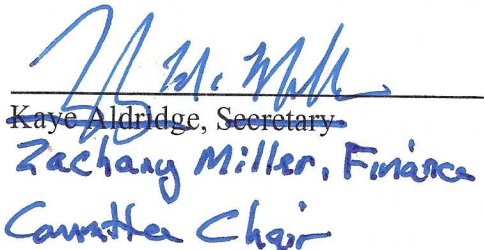 Kaye Aldridge, Secretary
Zachary Miller, Finance
Committee Chair